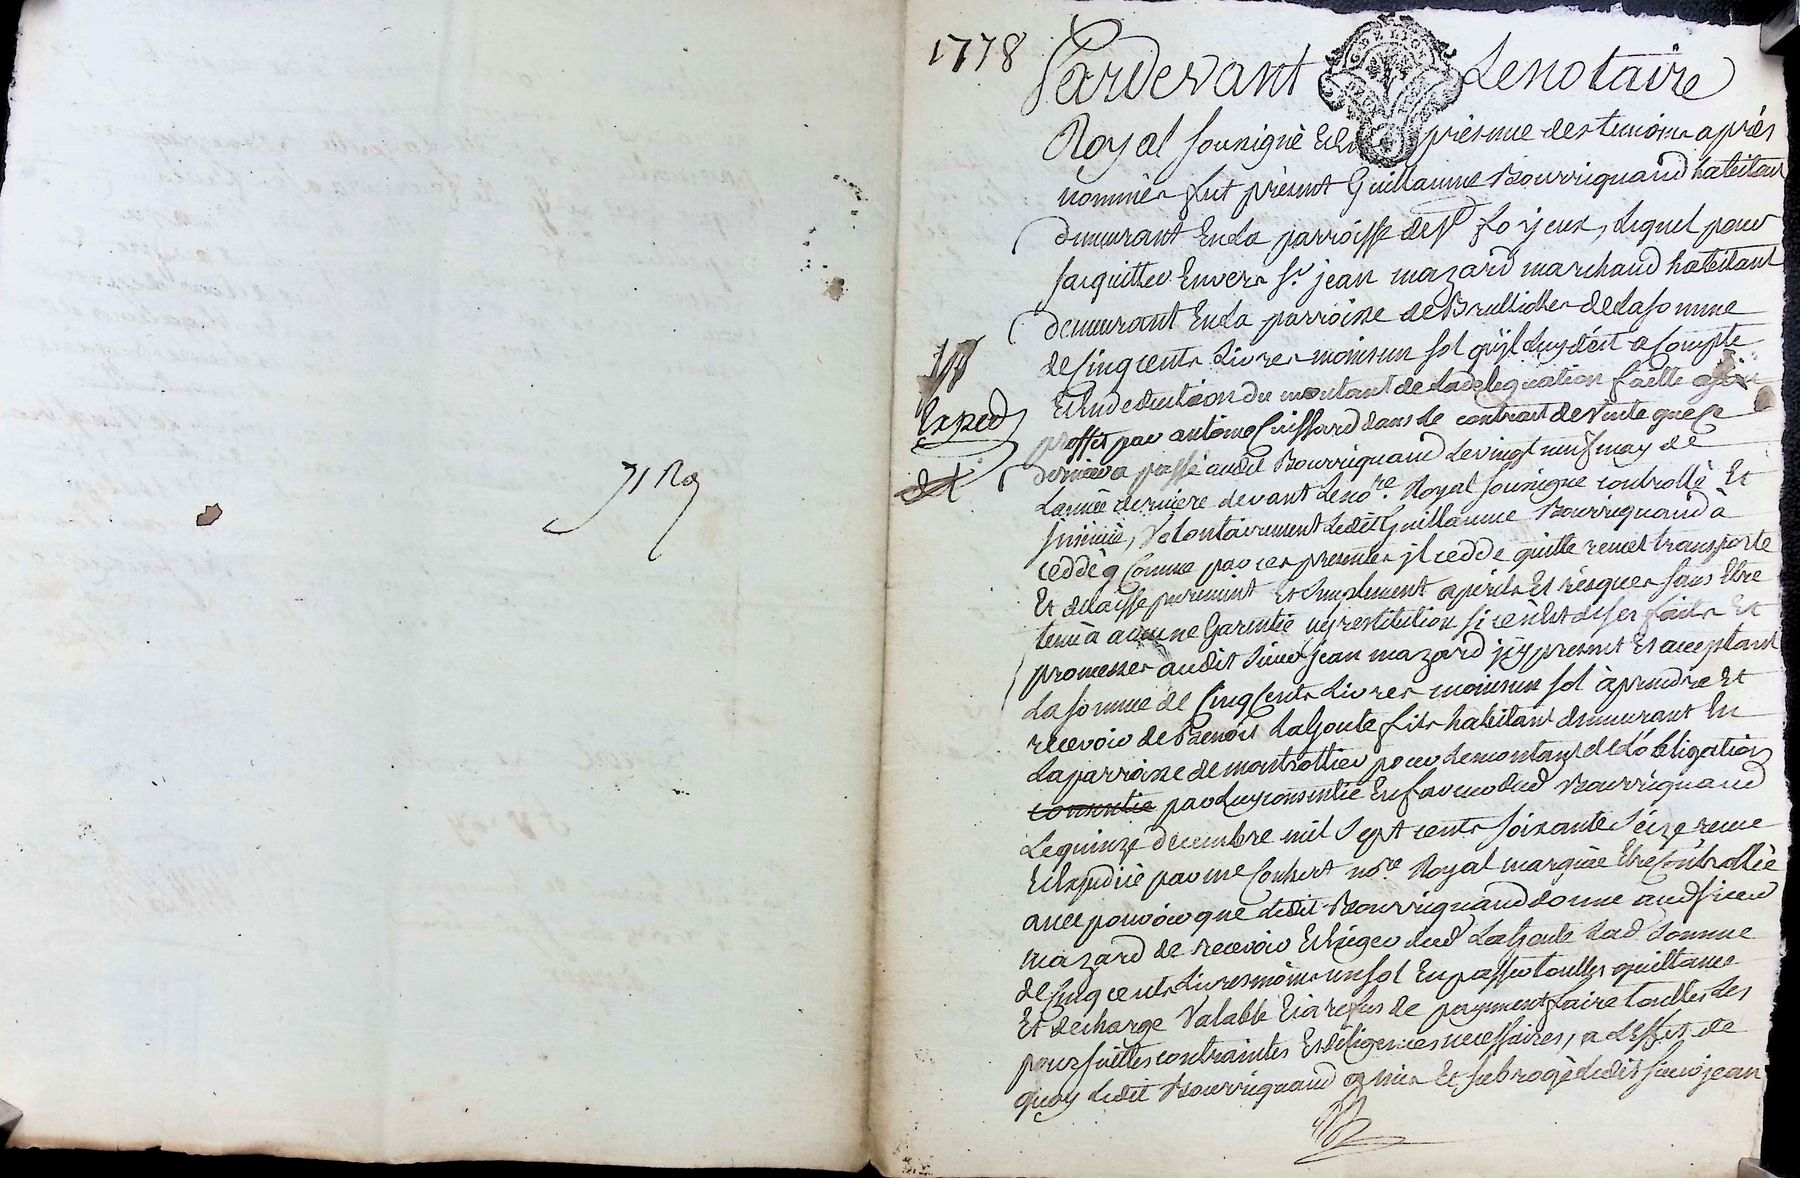 1778
Pardevant Le notaire
Royal sousigné Et En presence des temoins aprés
nommés fut présent Guillaume Bourriquand habitant
demeurant En La parroisse de St Forjeux, Lequel pour
sacquitter Envers Sr. jean mazard marchand habitant
demeurant En La parroisse de Brullioles de La somme
de Cinq cents Livres moins un sol quil Luy doit a Compte
Et En deduction du montant de La deleguation faitte a son
proffit par antoine Cuissard dans Le contrat de vente que Ce
dernier a passé audit Bourriquand Le vingt neuf may de
L'année derniere devant Le nore. Royal sousigné controllé Et
insinué, Volontairement Ledit Guillaume Bourriquand à
ceddé, Comme par ces presentes jl cedde quitte remet transporte
Et delaisse purement Et Simplement a perils Et risques sans Etre
tenu à aucune Garentie ny restitution si ce n'est de ses faits Et
promesses audit Sieur jean mazard jcy present Et acceptant
La somme de Cinq Cents Livres moins un sol à prendre Et
recevoir de Benoit Lagoute fils habitant demeurant En
La parroisse de montrottier pour Le montant de L'obligation
consentie par Luy consentie En faveur dud Bourriquand
Le quinze decembre mil Sept cents soixante Séize recue
Et Expediée par me Conhert nore Royal
avec pouvoir que Ledit Bourriquand donne aud sieur
mazard de recevoir Et Exiger dud Lagoute Lad. Somme
de Cinq cents Livres moins un sol En passer touttes quittance
Et decharge Valable Et a refus de payement faire touttes Les
poursuittes contraintes Et diligences necessaires, a L'effet de
quoy Ledit Bourriquand a mis Et subrogé Ledit sieur jean
Exped